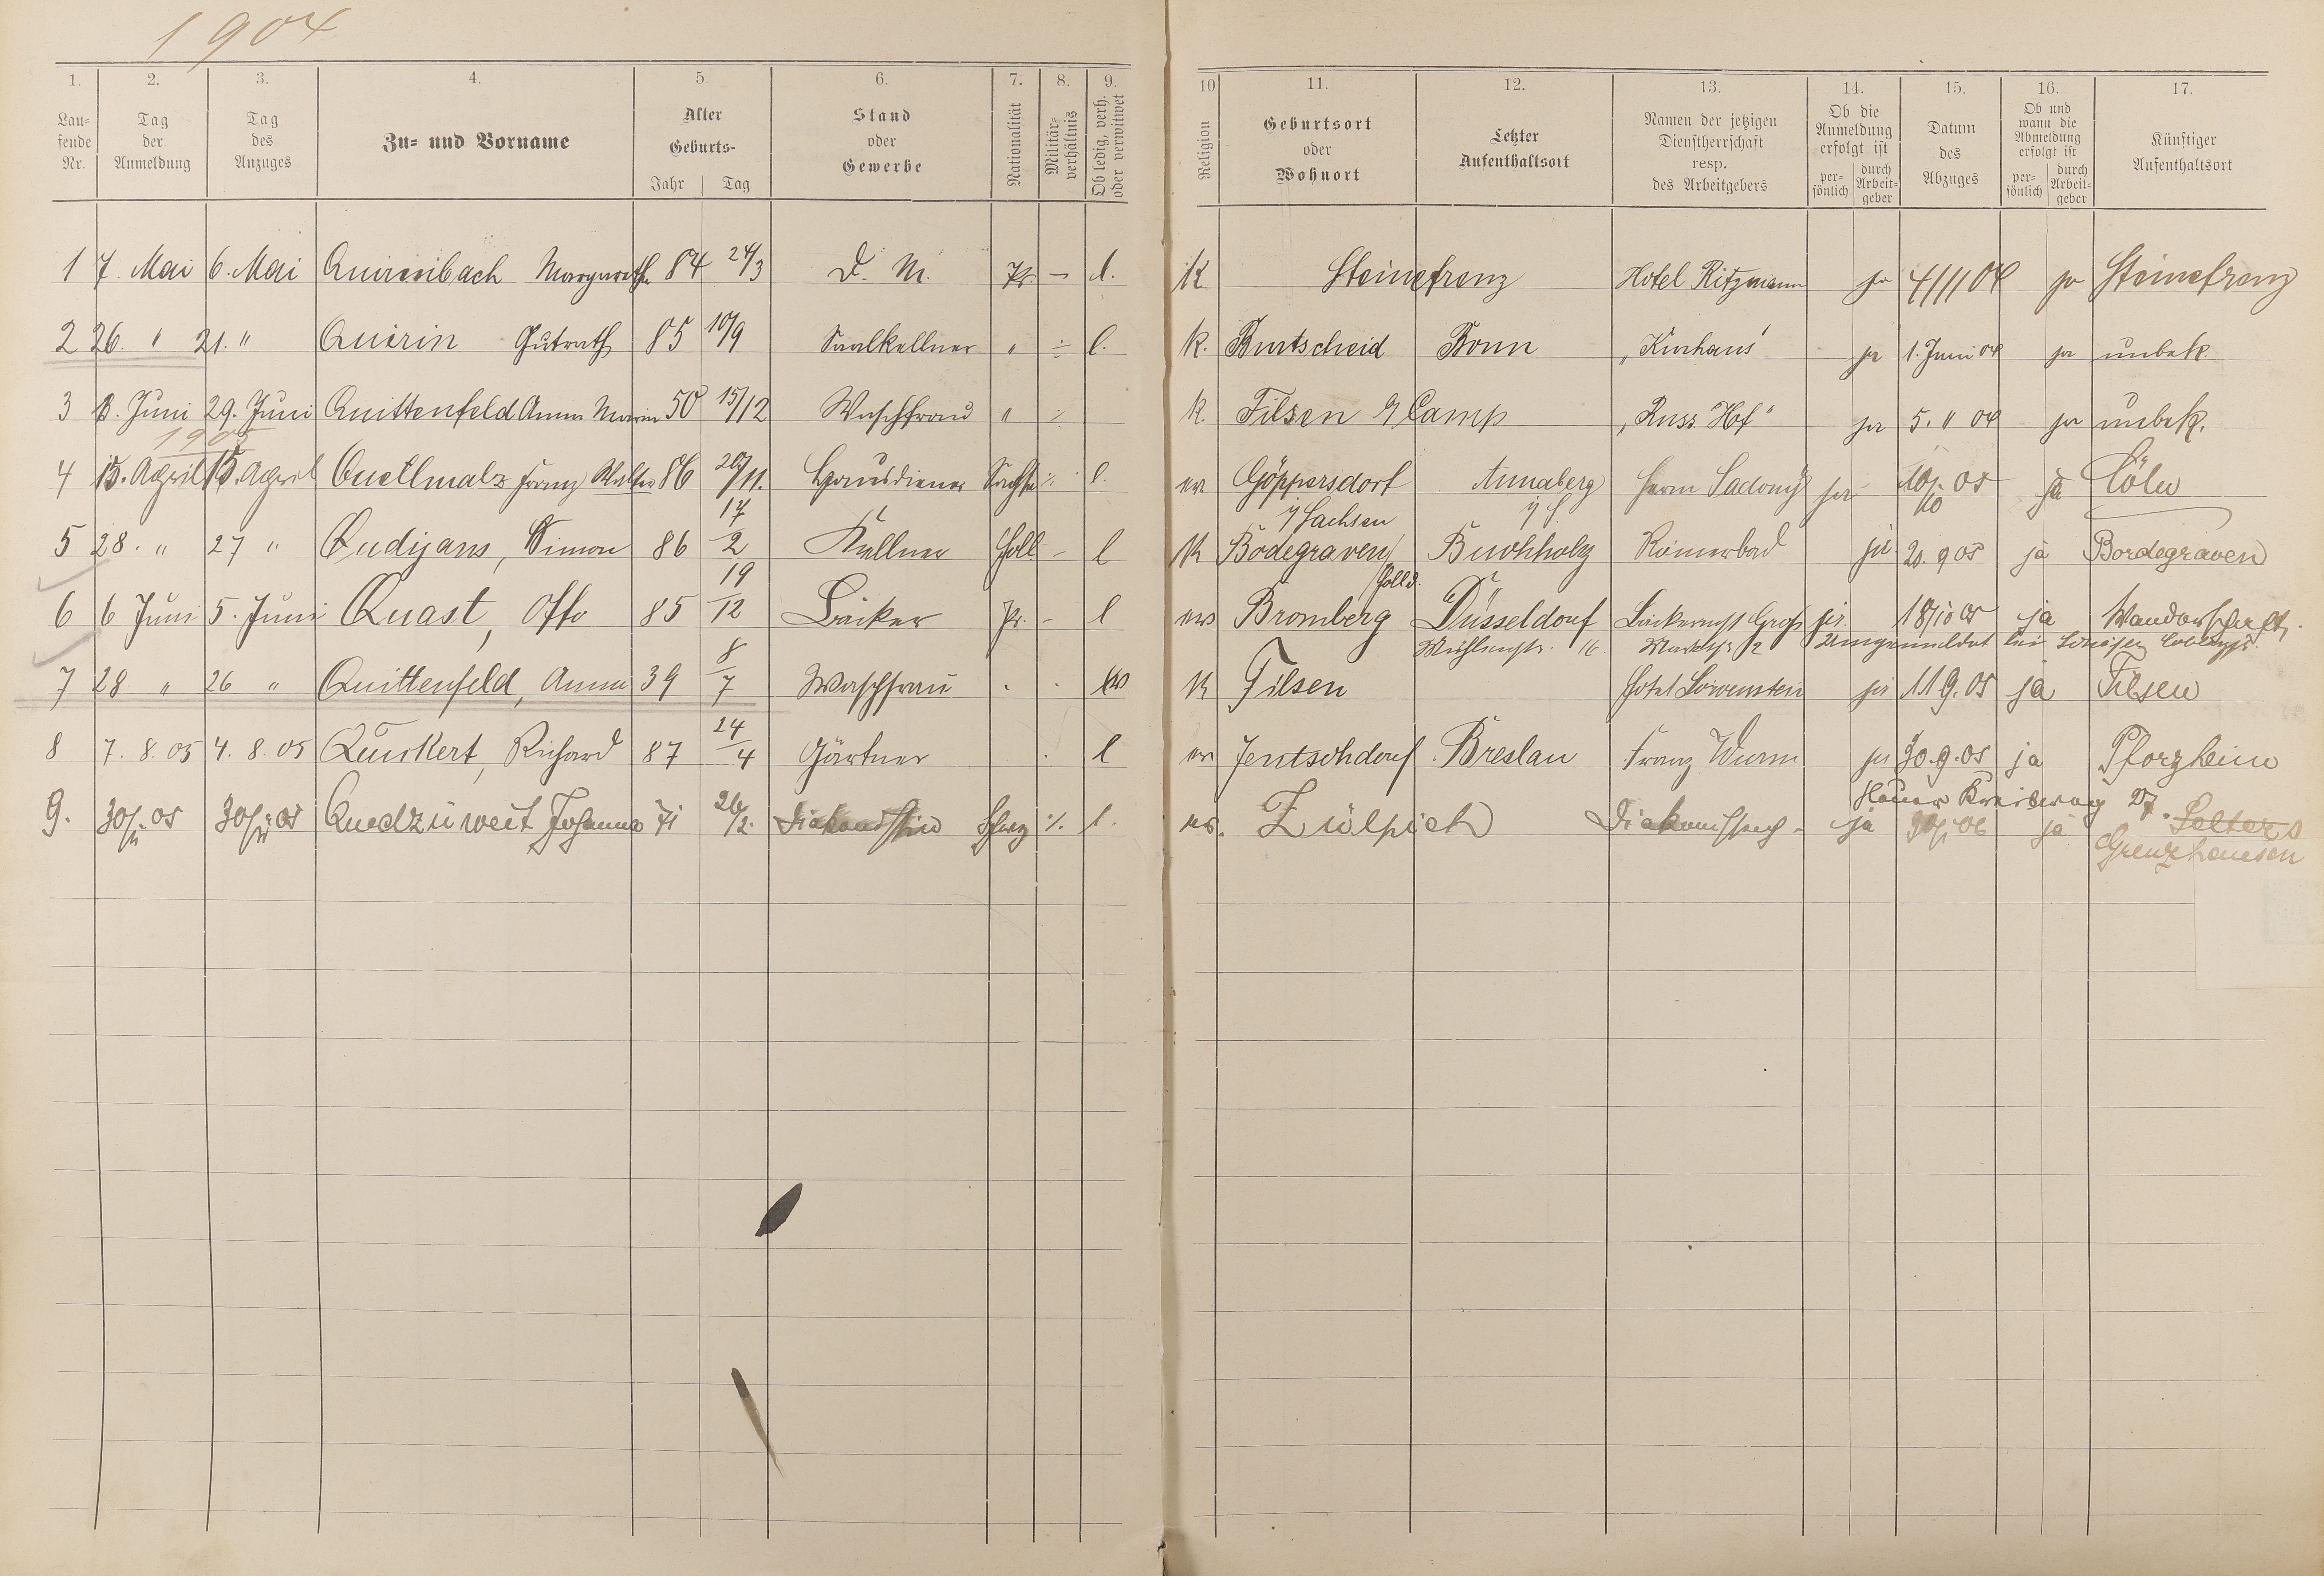 1904
1. 2. 3. 4. 5. 6. 7. 8. 9. 10 11. 12. 13. 14. 15. 16. 17.
Lau-
fende
Nr.
Tag
der
Anmeldung
Tag
des
Anzuges
Zu- und Vorname
Alter
Geburts-
Jahr Tag
Stand
oder
Gewerbe
Nationalität
Militär-
verhältnis
Ob ledig, verh.
oder verwitwet
Religion
Geburtsort
oder
Wohnort
Letzter
Aufenthaltsort
Namen der jetzigen
Dienstherrschaft
resp.
des Arbeitgebers
Ob die
Anmeldung
erfolgt ist
per-
sönlich
durch
Arbeit-
geber
Datum
des
Abzuges
Ob und
wann die
Abmeldung
erfolgt ist
per-
sönlich
durch
Arbeit-
geber
Künftiger
Aufenthaltsort
1 7. Mai 6. Mai Quirmbach Margarethe 84 24/3 D. M. Pr. – l. K Steinefrenz Hotel Ritzmann ja 4/11 04 ja Steinefrenz
2 26. " 21. " Quirin Gutrath 85 10/9 Saalkellner " ÷ l. K. Burtscheid Bonn „Kurhaus" ja 1. Juni 04 ja unbek.
3 8. Juni 29. Juni Quittenfeld Anna Maria 50 15/12 Waschfrau " ÷ K. Filsen Camp „Russ. Hof" ja 5. " 04 ja unbek.
1905
4 15. April 15. April Quellmalz Franz Walter 86 20/11. Hausdiener Sachse ÷ l. ev. Göppersdorf Annaberg Herm Sadony ja 10/10 05 ja Cöln
i/Sachsen i/S.
5 28. " 27 " Qudijans, Simon 86 17/2 Kellner Holl – l K Bodegraven Buchholz Römerbad ja 20. 9 05 ja Bordegraven
Holld.
6 6 Juni 5. Juni Quast, Otto 85 19/12 Bäcker Pr. – l ev Bromberg Düsseldorf Bäckermst Groß ja. 18/10 05 ja Wanderschaft.
16. 2 Umgemeldet bei
7 28 " 26 " Quittenfeld, Anna 39 8/7 Waschfrau " " W K Filsen Hotel Löwenstein ja 11 9. 05 ja Filsen
8 7. 8. 05 4. 8. 05 Quickert, Richard 87 24/4 Gärtner l ev Jentschdorf Breslau Franz Wurm ja 30. 9. 05 ja Pforzheim
9. 30/ii 05 30/ii 05 Quedzuweit Johanna 71 26/2. Diakonissin %. l. ev. Zülpich ja 30/i 06 ja Selters
Grenzhausen